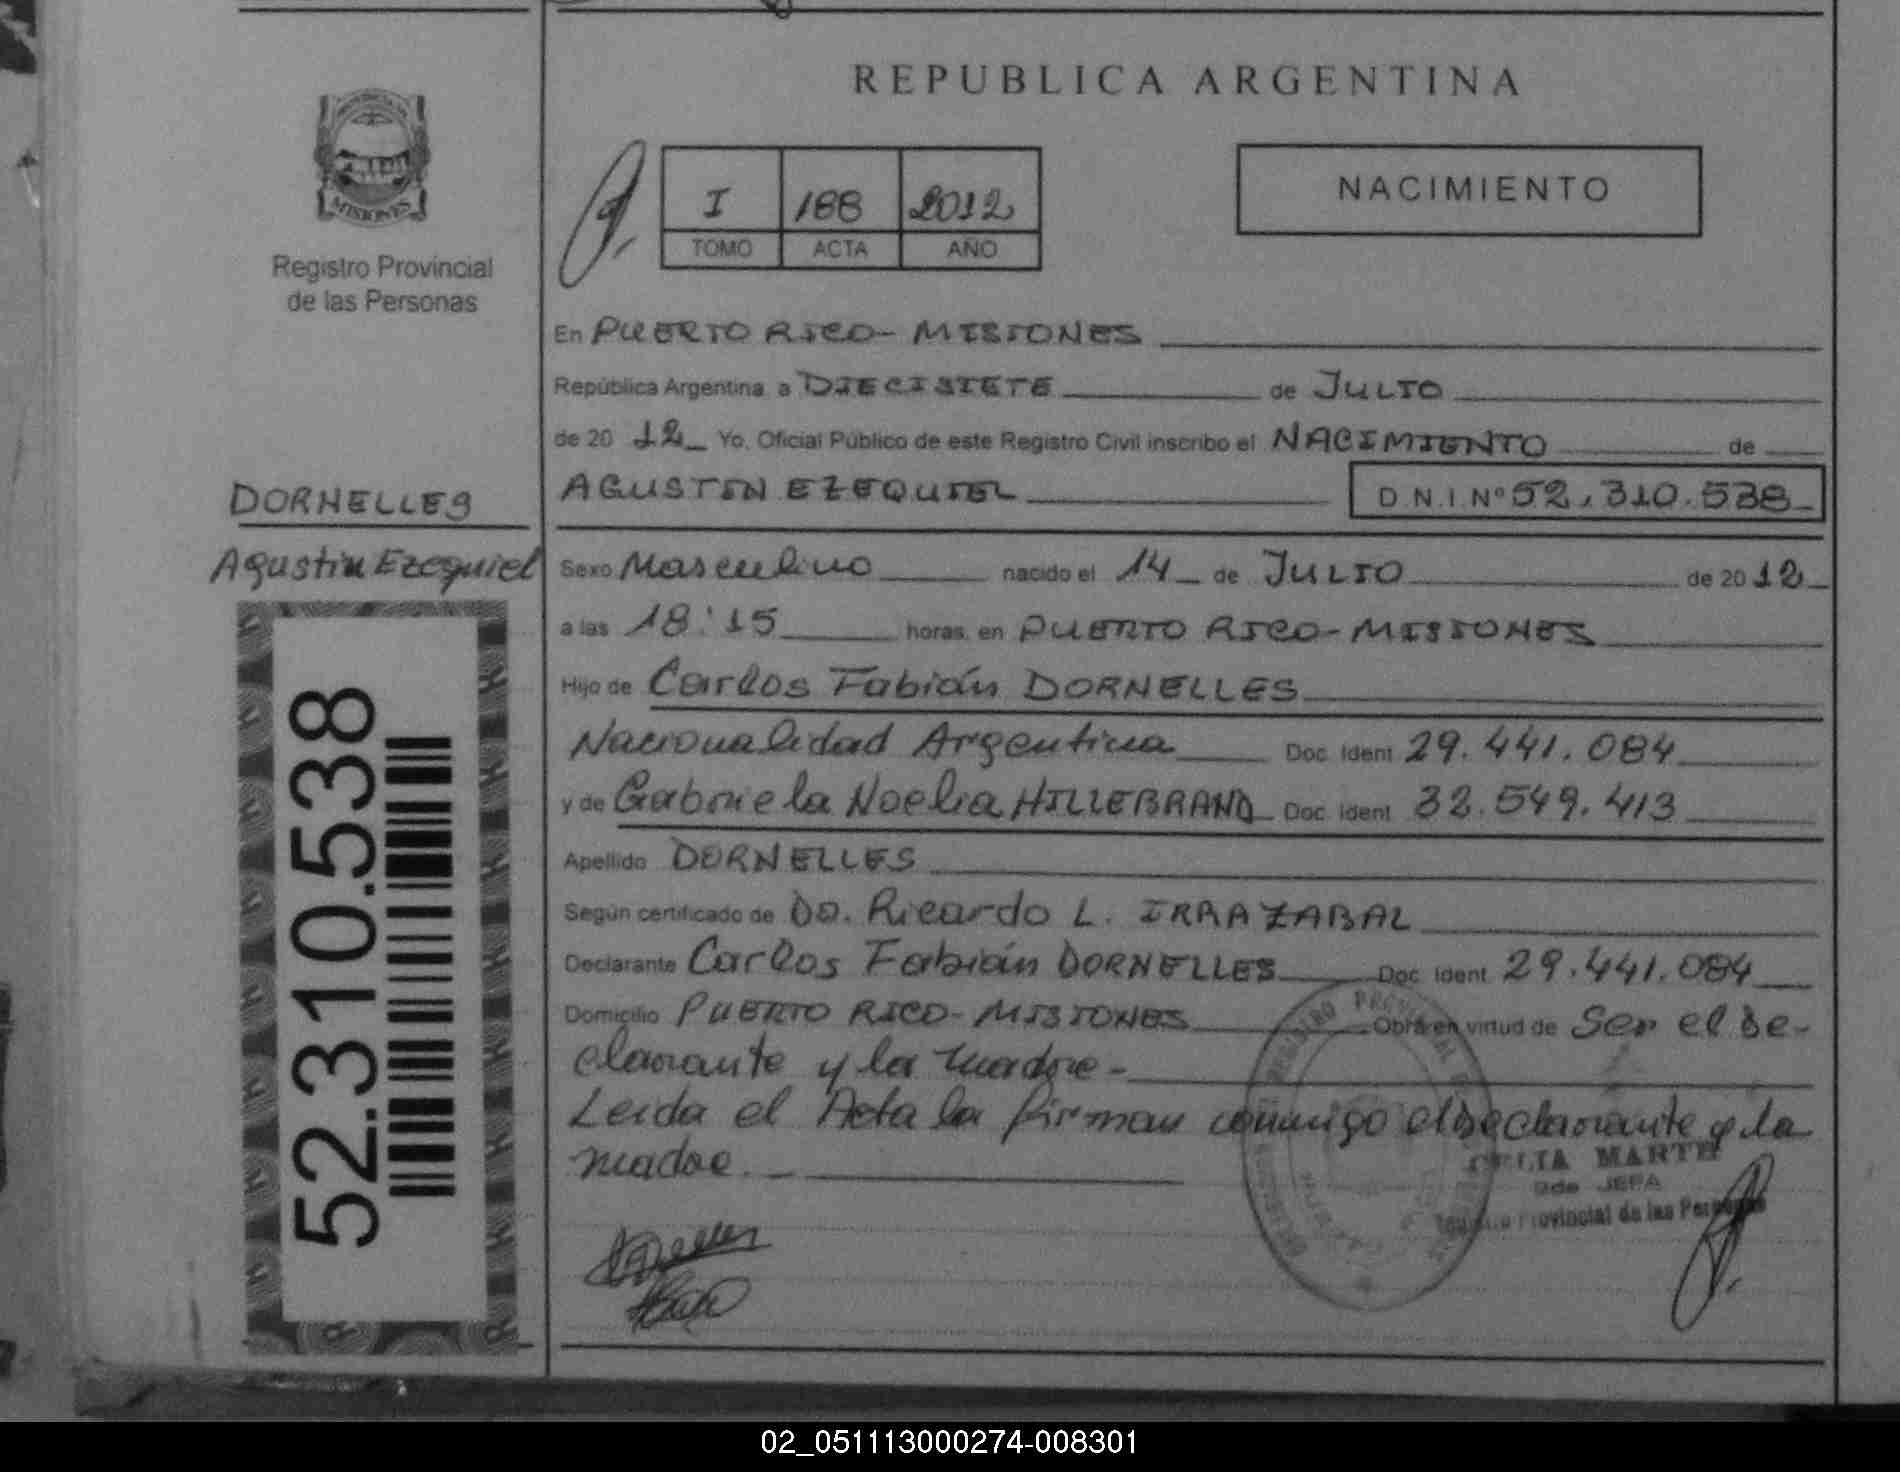 REPUBLICA ARGENTINA
MISIONES
Registro Provincial
de las Personas
I 188 2012
TOMO ACTA AÑO
NACIMIENTO
En PUERTO RICO - MISIONES
República Argentina a DIECISIETE de JULIO
de 20 12 Yo. Oficial Público de este Registro Civil inscribo el NACIMIENTO de
AGUSTIN EZEQUIEL D.N.I. Nº 52.310.538
DORNELLES
Agustin Ezequiel
52.310.538
Sexo Masculino nacido el 14 de JULIO de 20 12
a las 18:15 horas. en PUERTO RICO - MISIONES
Hijo de Carlos Fabián DORNELLES
Nacionalidad Argentina Doc. Ident. 29.441.084
y de Gabriela Noelia HILLEBRAND Doc. Ident. 32.549.413
Apellido DORNELLES
Según certificado de Dr. Ricardo L. IRRAZABAL
Declarante Carlos Fabián DORNELLES Doc. Ident. 29.441.084
Domicilio PUERTO RICO - MISIONES Obra en virtud de Ser el De-
clarante y la madre -
Leida el Acta la firman conmigo el Declarante y la
madre.
CELIA MARTE
JEFA
Provincial de las Personas
02_051113000274-008301